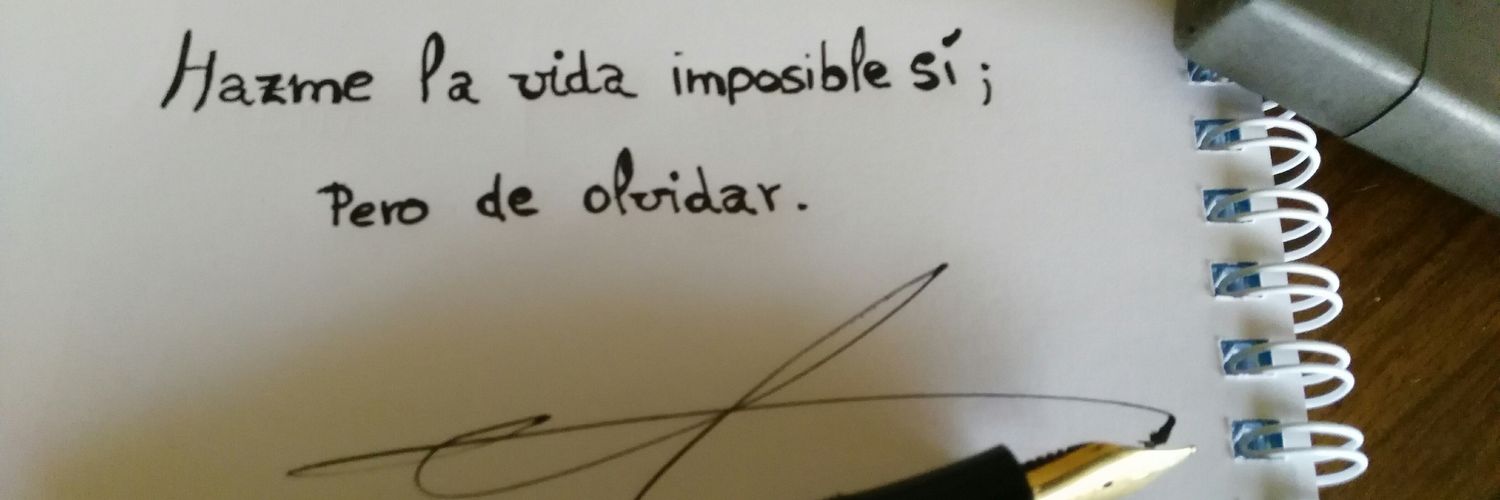 Hazme la vida imposible sí;
Pero de olvidar.